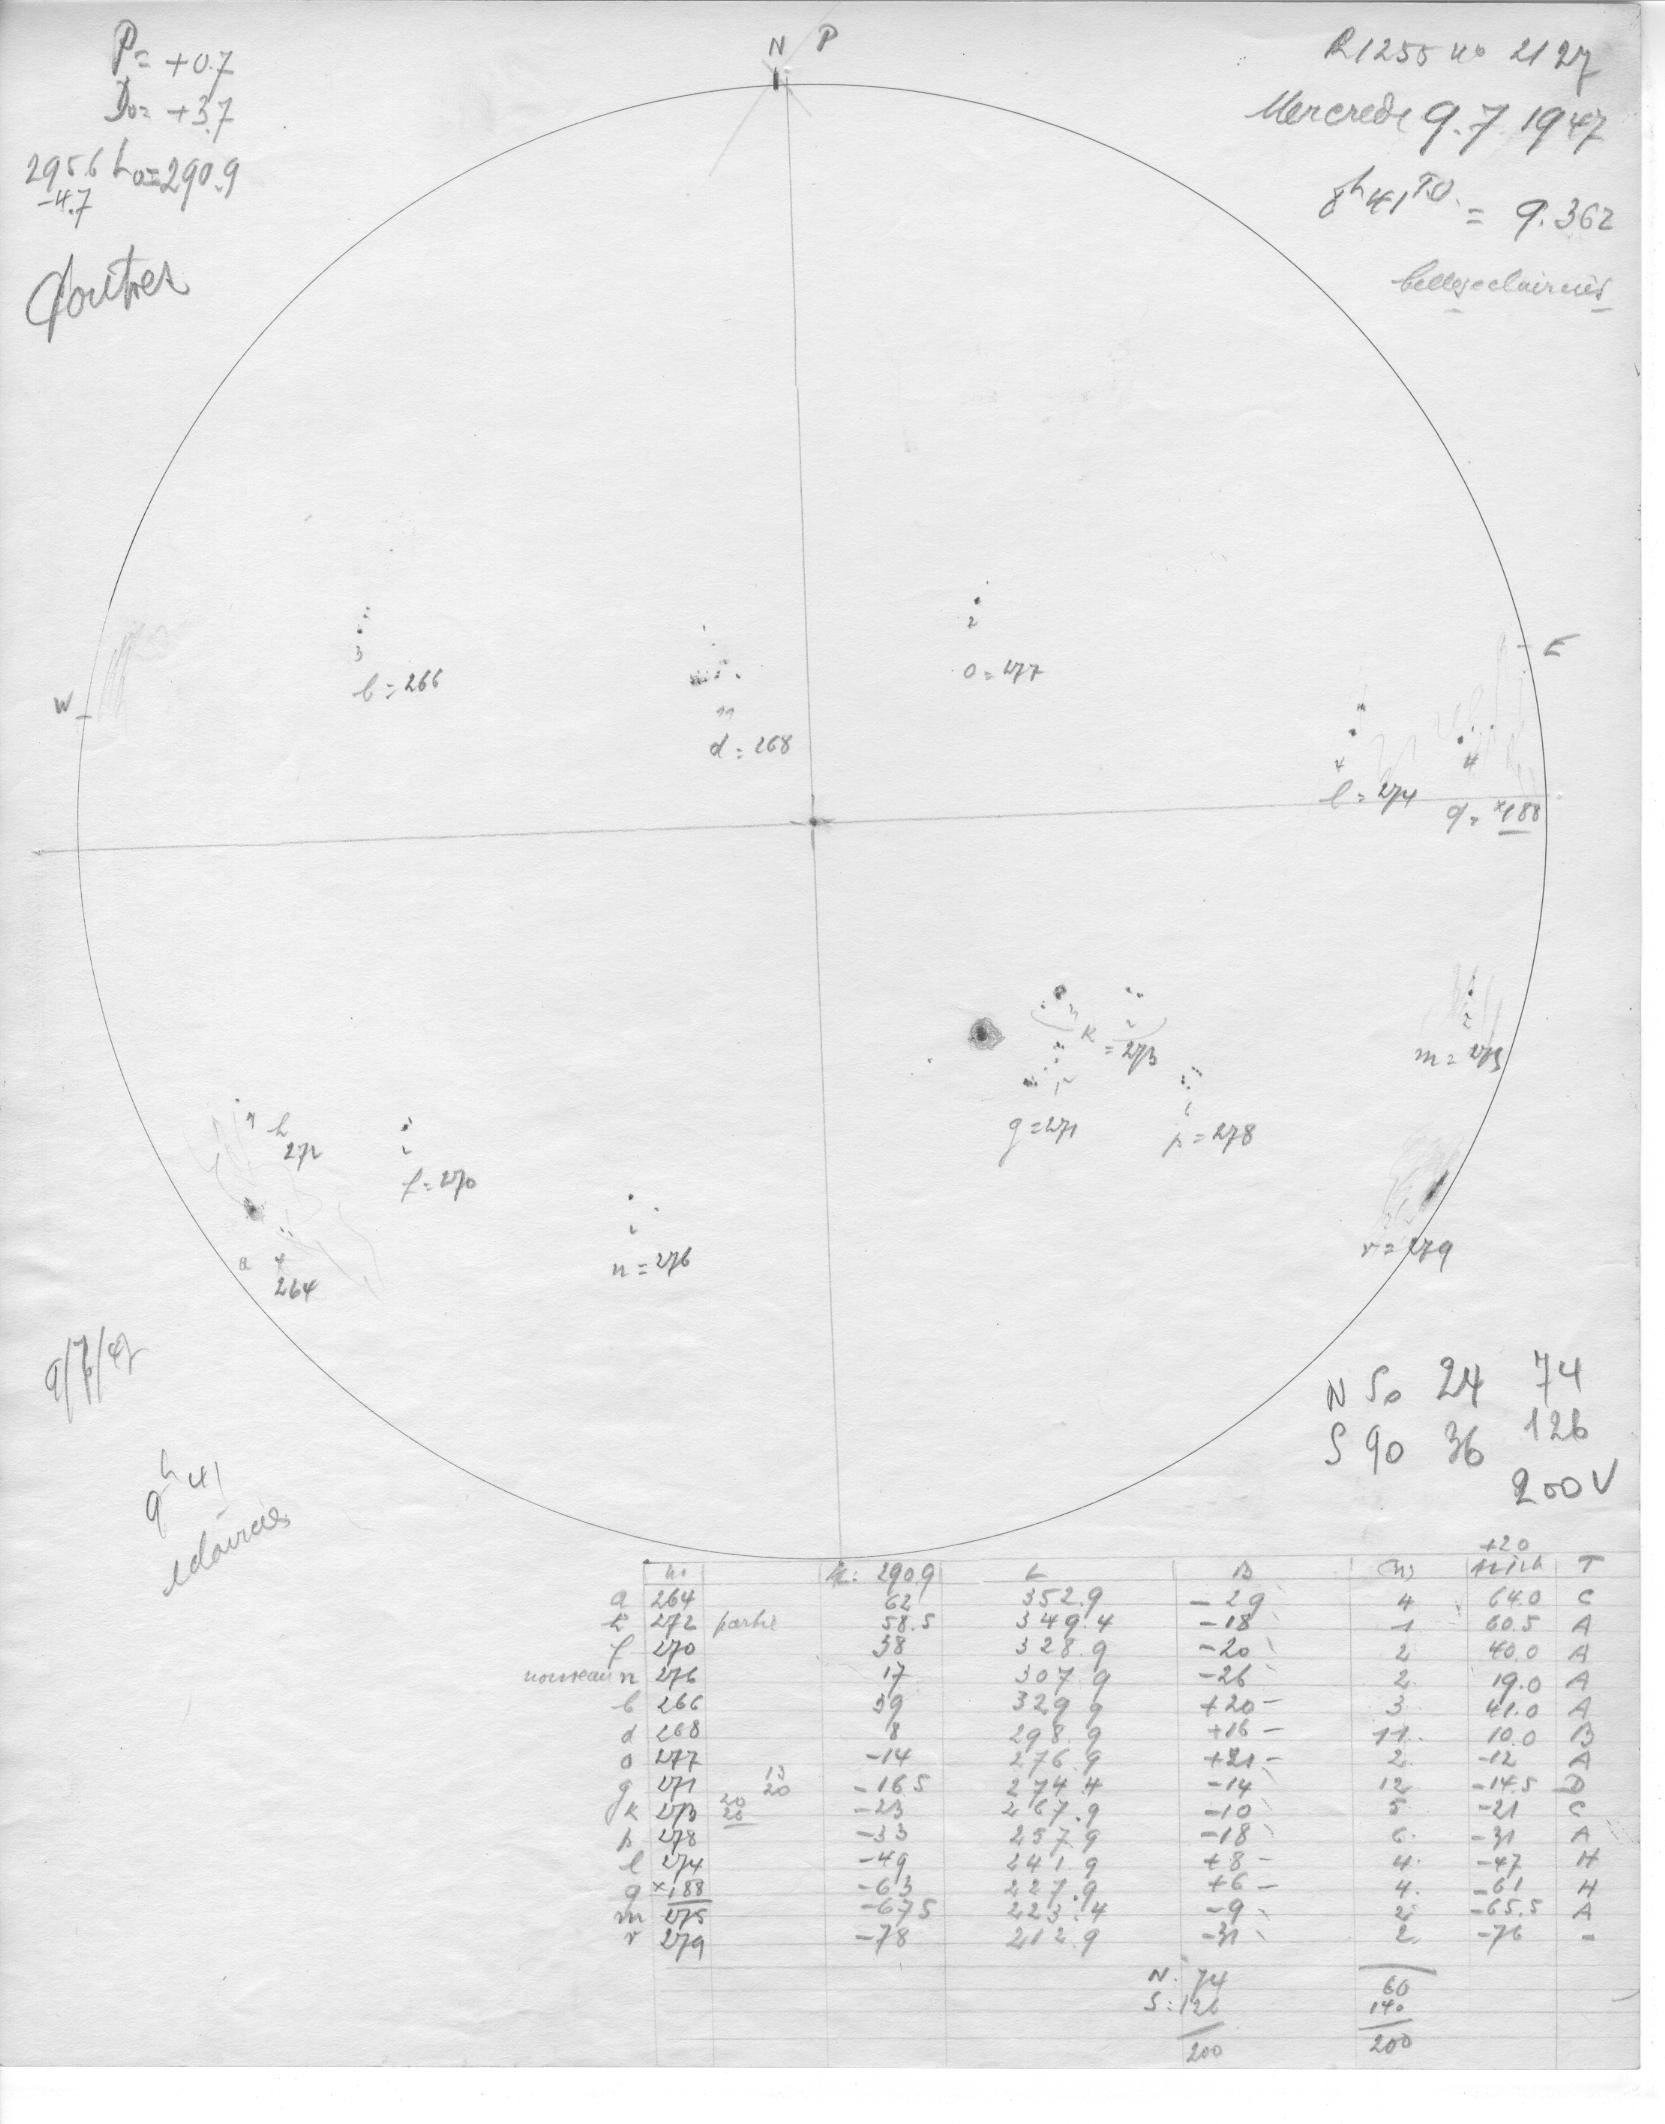 P = +0.7
D₀ = +3.7
295.6 L₀ = 290.9
-4.7
N P
R1255 no 2127
Mercredi 9.7 1947
8h41 T.U. = 9.362
belles eclaircies
W
E
3
b = 266
11
d = 268
2
o = 277
4
l = 274
4
q = ×188
k = 273
g = 271
6
p = 278
2
m = 275
1 h
272
f = 270
a 4
264
n = 276
r = 279
9/7/47
9h41
eclaircies
N 50 24 74
S 90 36 126
200 V
+20
no L: 290.9 L B T
a 264 62 352.9 -29 4 64.0 C
h 272 partie 58.5 349.4 -18 1 60.5 A
f 270 38 328.9 -20 2 40.0 A
nouveau n 276 17 307.9 -26 2 19.0 A
b 266 39 329.9 +20 - 3 41.0 A
d 268 8 298.9 +16 - 11 10.0 B
o 277 -14 276.9 +21 - 2 -12 A
g 271 13 20 -16.5 274.4 -14 12 -14.5 D
k 273 20 26 -23 267.9 -10 5 -21 C
p 278 -33 257.9 -18 6 -31 A
l 274 -49 241.9 +8 - 4 -47 H
q ×188 -63 227.9 +6 - 4 -61 H
m 275 -67.5 223.4 -9 2 -65.5 A
r 279 -78 212.9 -31 2 -76 -
N: 74 60
S: 126 140
200 200